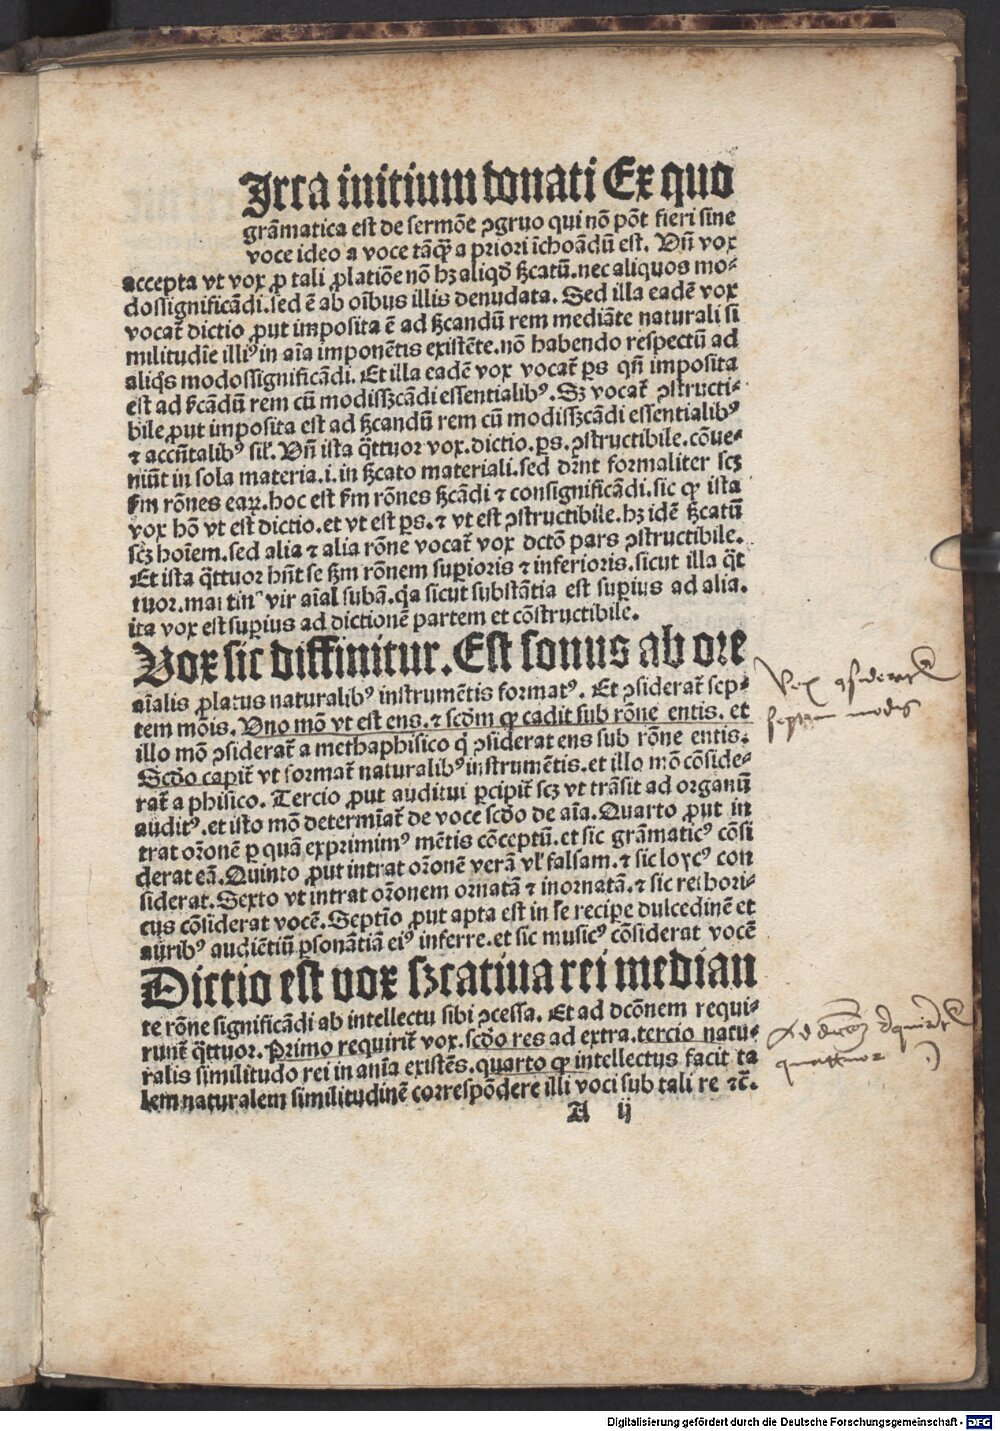 Irca initium donati Ex quo
grãmatica est de sermõe ꝯgruo qui nõ põt fieri sine
voce ideo a voce tãqȝ̃ a priori ĩchoãdũ est. Vñ vox
accepta vt vox ꝓ tali ꝓlatiõe nõ hȝ aliqd̃ sȝcatũ. nec aliquos mo⸗
dossignificãdi. sed ẽ ab oĩbus illis denudata. Sed illa eadẽ vox
vocat̃ dictio ꝓut imposita ẽ ad sȝcandũ rem mediãte naturali si
militudĩe illiꝰ in aĩa imponẽtis existẽte. nõ habendo respectũ ad
aliq̃s modossignificãdi. Et illa eadẽ vox vocat̃ ꝑs qñ imposita
est ad sȝcãdũ rem cũ modissȝcãdi essentialibꝰ. Sȝ vocat̃ ꝯstructi⸗
bile ꝓut imposita est ad sȝcandũ rem cũ modissȝcãdi essentialibꝰ
⁊ accñtalibꝰ sil̃. Vñ ista q̃ttuor vox. dictio. ꝑs. ꝯstructibile. cõue⸗
niũt in sola materia. i. in sȝcato materiali. sed dr̃nt formaliter scȝ
sm̃ rõnes eaꝝ. hoc est sm̃ rõnes sȝcãdi ⁊ consignificãdi. sic qȝ ista
vox hõ vt est dictio. et vt est ꝑs. ⁊ vt est ꝯstructibile. hȝ idẽ sȝcatũ
scȝ hoĩem. sed alia ⁊ alia rõne vocat̃ vox dctõ pars ꝯstructibile.
Et ista q̃ttuor hñt se sm̃ rõnem suꝑioris ⁊ inferioris. sicut illa q̃t
tuor. martinꝰ vir aĩal subã. q̃a sicut substãtia est suꝑius ad alia.
ita vox est suꝑius ad dictionẽ partem et cõstructibile.
Vox sic diffinitur. Est sonus ab ore
aĩalis ꝓlatus naturalibꝰ instrumẽtis formatꝰ. Et ꝯsiderat̃ sep⸗
tem mõis. Vno mõ vt est ens. ⁊ scd̃m qȝ cadit sub rõne entis. et
illo mõ ꝯsiderat̃ a methaphisico q̃ ꝯsiderat ens sub rõne entis.
Scd̃o capit̃ vt format̃ naturalibꝰ instrumẽtis. et illo mõ cõside⸗
rat̃ a phisico. Tercio ꝓut auditui ꝑcipit̃ scȝ vt trãsit ad organũ
auditꝰ. et isto mõ determĩat̃ de voce scd̃o de aĩa. Quarto ꝓut in
trat or̃onẽ ꝑ quã exprimimꝰ mẽtis cõceptũ. et sic grãmaticꝰ cõsi
derat eã. Quinto ꝓut intrat or̃onẽ verã vl̃ falsam. ⁊ sic loycꝰ con
siderat. Sexto vt intrat or̃onem ornatã ⁊ inornatã. ⁊ sic rethori⸗
cus cõsiderat vocẽ. Septĩo ꝓut apta est in se recipe dulcedinẽ et
auribꝰ audiẽtiũ ꝑsonãtiã eiꝰ inferre. et sic musicꝰ cõsiderat vocẽ
Dictio est vox sȝcatiua rei median
te rõne significãdi ab intellectu sibi ꝯcessa. Et ad dcõnem requi⸗
runt̃ q̃ttuor. Primo requirit̃ vox. scd̃o res ad extra. tercio natu⸗
ralis similitudo rei in anĩa existẽs. quarto qȝ intellectus facit ta
lem naturalem similitudinẽ correspõdere illi voci sub tali re ⁊c̃.
A ij
Vox ꝯsiderat̃
septem modis
Ad dictionem requirunt̃
quattuor
Digitalisierung gefördert durch die Deutsche Forschungsgemeinschaft - DFG